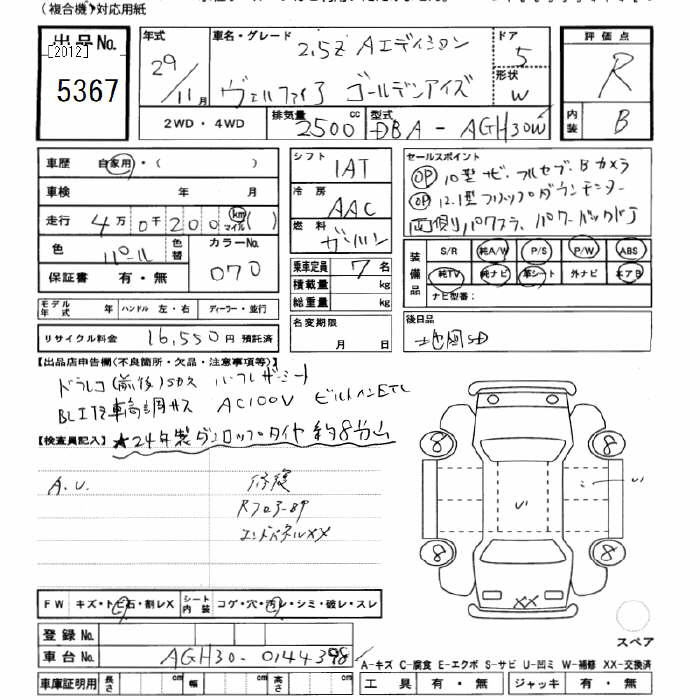 (複合機)対応用紙
出品No.
[2012]
5367
年式
29
11月
車名・グレード
2.5Z Aエディション
ヴェルファイア ゴールデンアイズ
ドア
5
形状
W
評価点
R
内装
B
2WD・4WD
排気量
2500 cc
型式
DBA - AGH30W
車歴 自家用・( )
車検 年 月
走行 4万0千200 km マイル ( )
色 パール
色替
カラーNo.
070
保証書 有・無
モデル年式 年 ハンドル 左・右 ディーラー・並行
リサイクル料金 16,550円 預託済
シフト
IAT
冷房
AAC
燃料
ガソリン
乗車定員 7名
積載量 kg
総重量 kg
名変期限
月 日
セールスポイント
OP 10型ナビ・フルセグ・Bカメラ
OP 12.1型フリップダウンモニター
両側パワスラ、パワーバックドア
装備品
S/R 純A/W P/S P/W ABS
純TV 純ナビ 革シート 外ナビ エアB
ナビ型番:
後日品
地図SD
【出品店申告欄(不良箇所・欠品・注意事項等)】
ドラレコ(前後)SDカス ハーフレザーシート
AC100V ビルトインETC
【検査員記入】
★24年製ダンロップタイヤ 約8分山
A.U.
修復
エンドパネルXX
8
8
8
8
XX
スペア
FW キズ・トビ石・割レX
シート内装 コゲ・穴・汚レ・シミ・破レ・スレ
登録No.
車台No. AGH30-0144398
A-キズ C-腐食 E-エクボ S-サビ U-凹ミ W-補修 XX-交換済
車庫証明用 長さ cm 幅 cm 高さ cm
工具 有・無 ジャッキ 有・無